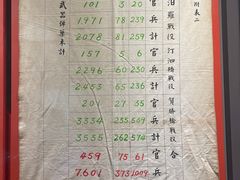 附表二
汨羅戰役
汀泗橋戰役
賀勝橋戰役
合
101 3 20 官
1971 78 239 兵
2078 81 259 計
157 5 6 官
2296 60 230 兵
2453 65 236 計
27 55 官
3334 255 509 兵
3555 262 574 計
459 75 61 官
7.601 373 1079 兵
武器彈藥未計